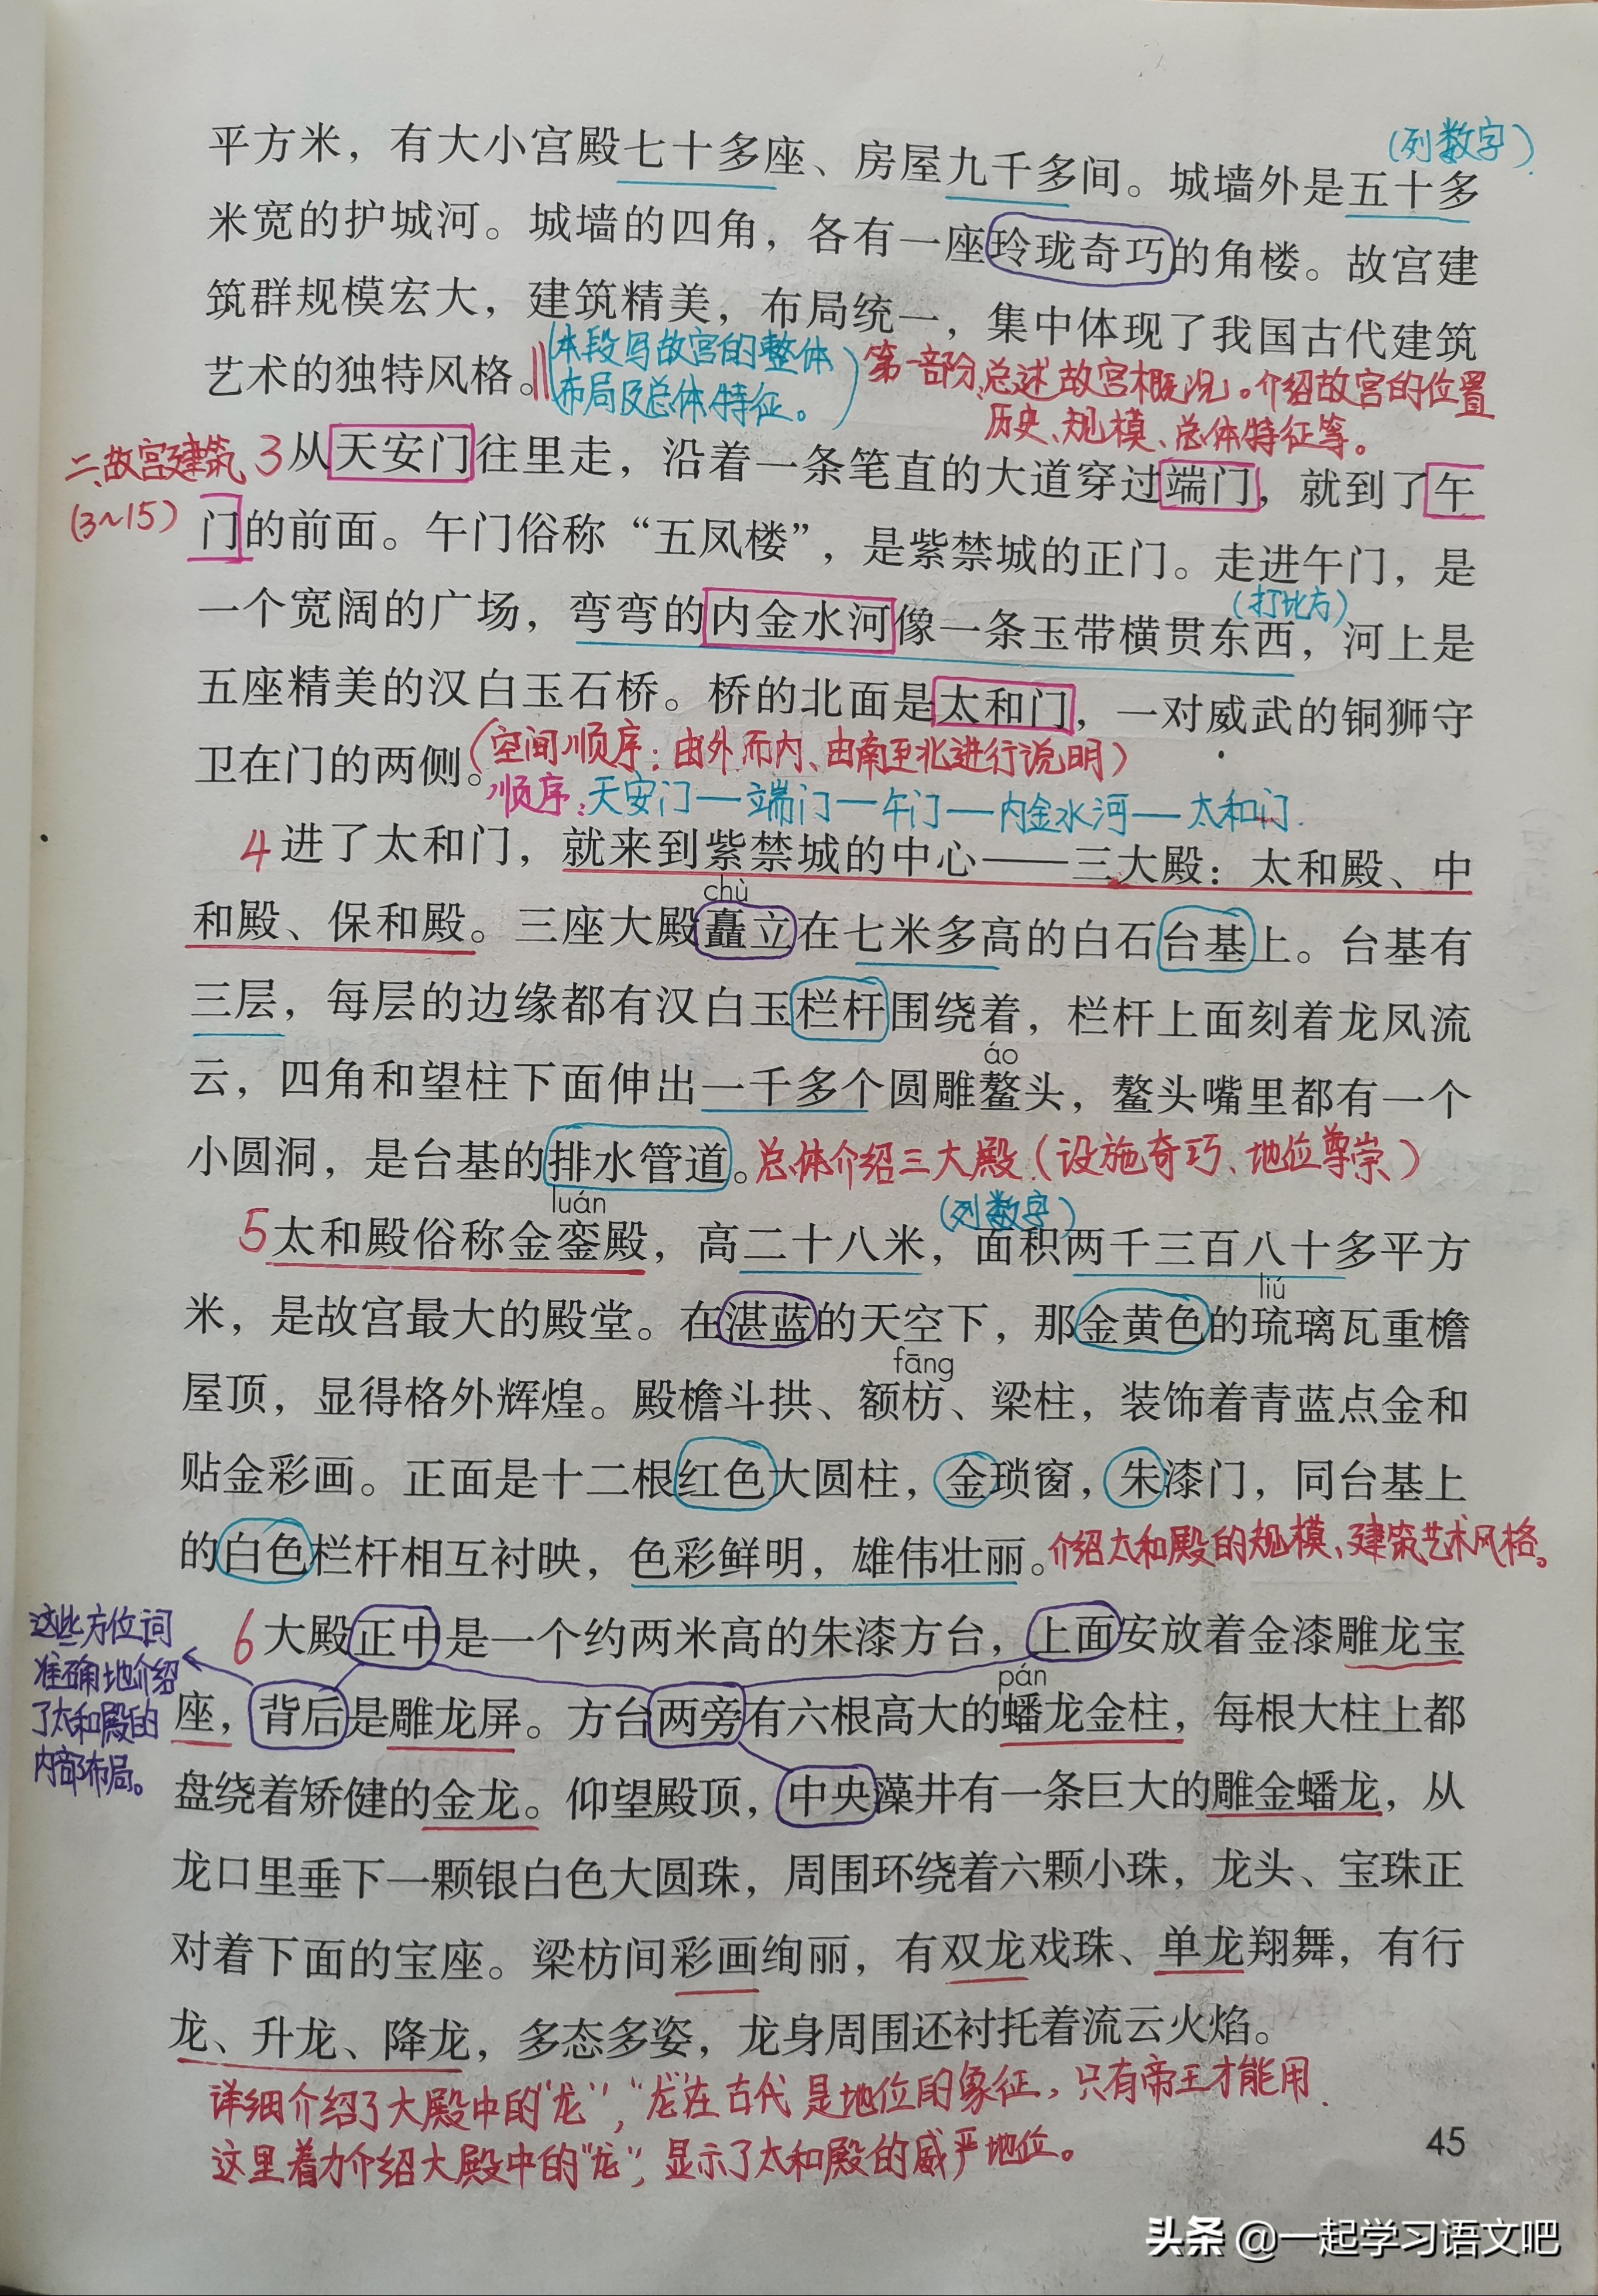 (列数字)
平方米，有大小宫殿七十多座、房屋九千多间。城墙外是五十多
米宽的护城河。城墙的四角，各有一座玲珑奇巧的角楼。故宫建
筑群规模宏大，建筑精美，布局统一，集中体现了我国古代建筑
艺术的独特风格。
本段写故宫的整体
布局及总体特征。
第一部分，总述故宫概况。介绍故宫的位置
历史、规模、总体特征等。
二、故宫建筑
(3~15)
3从天安门往里走，沿着一条笔直的大道穿过端门，就到了午
门的前面。午门俗称“五凤楼”，是紫禁城的正门。走进午门，是
(打比方)
一个宽阔的广场，弯弯的内金水河像一条玉带横贯东西，河上是
五座精美的汉白玉石桥。桥的北面是太和门，一对威武的铜狮守
卫在门的两侧。(空间顺序：由外而内、由南至北进行说明)
顺序：天安门—端门—午门—内金水河—太和门.
4进了太和门，就来到紫禁城的中心——三大殿：太和殿、中
chù
和殿、保和殿。三座大殿矗立在七米多高的白石台基上。台基有
三层，每层的边缘都有汉白玉栏杆围绕着，栏杆上面刻着龙凤流
áo
云，四角和望柱下面伸出一千多个圆雕鳌头，鳌头嘴里都有一个
小圆洞，是台基的排水管道。总体介绍三大殿(设施奇巧、地位尊崇)
luán
(列数字)
5太和殿俗称金銮殿，高二十八米，面积两千三百八十多平方
liú
米，是故宫最大的殿堂。在湛蓝的天空下，那金黄色的琉璃瓦重檐
fāng
屋顶，显得格外辉煌。殿檐斗拱、额枋、梁柱，装饰着青蓝点金和
贴金彩画。正面是十二根红色大圆柱，金琐窗，朱漆门，同台基上
的白色栏杆相互衬映，色彩鲜明，雄伟壮丽。介绍太和殿的规模、建筑艺术风格。
这些方位词
准确地介绍
了太和殿的
内部布局。
6大殿正中是一个约两米高的朱漆方台，上面安放着金漆雕龙宝
pán
座，背后是雕龙屏。方台两旁有六根高大的蟠龙金柱，每根大柱上都
盘绕着矫健的金龙。仰望殿顶，中央藻井有一条巨大的雕金蟠龙，从
龙口里垂下一颗银白色大圆珠，周围环绕着六颗小珠，龙头、宝珠正
对着下面的宝座。梁枋间彩画绚丽，有双龙戏珠、单龙翔舞，有行
龙、升龙、降龙，多态多姿，龙身周围还衬托着流云火焰。
详细介绍了大殿中的“龙”，“龙”在古代是地位的象征，只有帝王才能用.
这里着力介绍大殿中的“龙”，显示了太和殿的威严地位。
45
头条 @一起学习语文吧